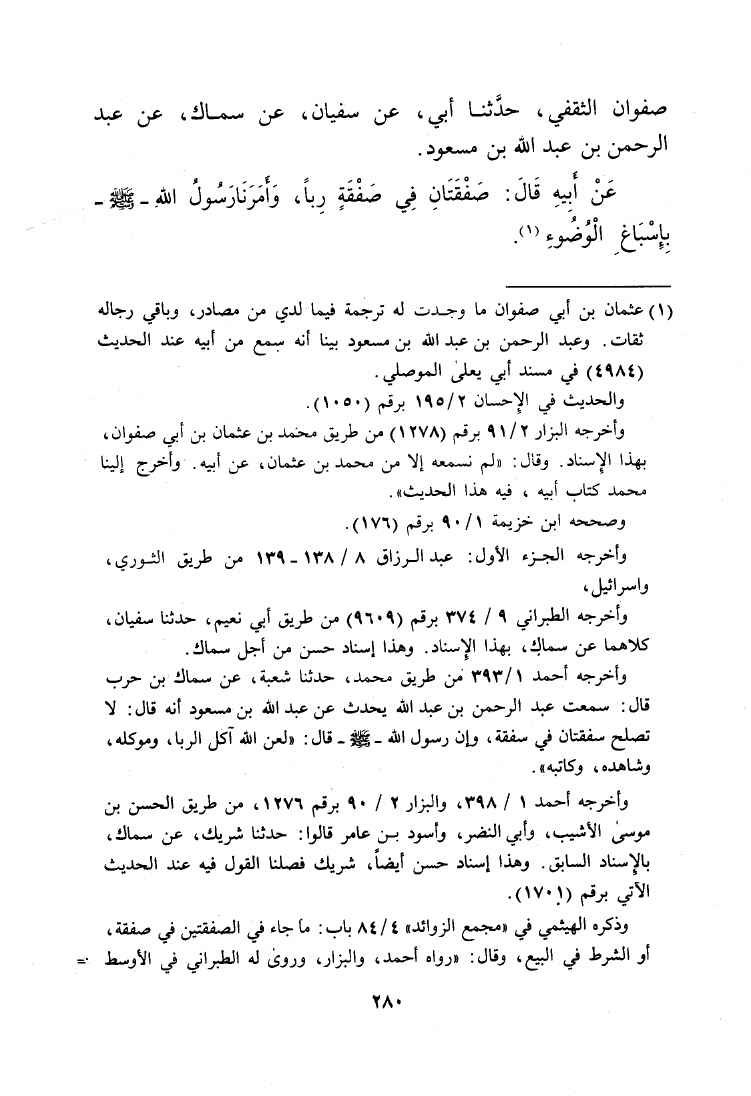 صفوان الثقفي، حدَّثنا أبي، عن سفيان، عن سماك، عن عبد
الرحمن بن عبد الله بن مسعود.
عَنْ أَبِيهِ قَالَ: صَفْقَتَانِ فِي صَفْقَةٍ رِباً، وَأَمَرَنَا رَسُولُ اللهِ ـ ﷺ ـ
بِإِسْبَاغِ الْوُضُوءِ (١).
(١) عثمان بن أبي صفوان ما وجدت له ترجمة فيما لدي من مصادر، وباقي رجاله
ثقات. وعبد الرحمن بن عبد الله بن مسعود بينا أنه سمع من أبيه عند الحديث
(٤٩٨٤) في مسند أبي يعلىٰ الموصلي.
والحديث في الإحسان ١٩٥/٢ برقم (١٠٥٠).
وأخرجه البزار ٩١/٢ برقم (١٢٧٨) من طريق محمد بن عثمان بن أبي صفوان،
بهذا الإسناد. وقال: «لم نسمعه إلا من محمد بن عثمان، عن أبيه. وأخرج إلينا
محمد كتاب أبيه ، فيه هذا الحديث».
وصححه ابن خزيمة ٩٠/١ برقم (١٧٦).
وأخرجه الجزء الأول: عبد الرزاق ٨ / ١٣٨ ـ ١٣٩ من طريق الثوري،
واسرائيل،
وأخرجه الطبراني ٩ / ٣٧٤ برقم (٩٦٠٩) من طريق أبي نعيم، حدثنا سفيان،
كلاهما عن سماك، بهذا الإسناد. وهذا إسناد حسن من أجل سماك.
وأخرجه أحمد ٣٩٣/١ من طريق محمد، حدثنا شعبة، عن سماك بن حرب
قال: سمعت عبد الرحمن بن عبد الله يحدث عن عبد الله بن مسعود أنه قال: لا
تصلح سفقتان في سفقة، وإن رسول الله ـ ﷺ ـ قال: «لعن الله آكل الربا، وموكله،
وشاهده، وكاتبه».
وأخرجه أحمد ١ / ٣٩٨، والبزار ٢ / ٩٠ برقم ١٢٧٦، من طريق الحسن بن
موسىٰ الأشيب، وأبي النضر، وأسود بن عامر قالوا: حدثنا شريك، عن سماك،
بالإسناد السابق. وهذا إسناد حسن أيضاً، شريك فصلنا القول فيه عند الحديث
الآتي برقم (١٧٠١).
وذكره الهيثمي في «مجمع الزوائد» ٨٤/٤ باب: ما جاء في الصفقتين في صفقة،
أو الشرط في البيع، وقال: «رواه أحمد، والبزار، وروىٰ له الطبراني في الأوسط =
٢٨٠